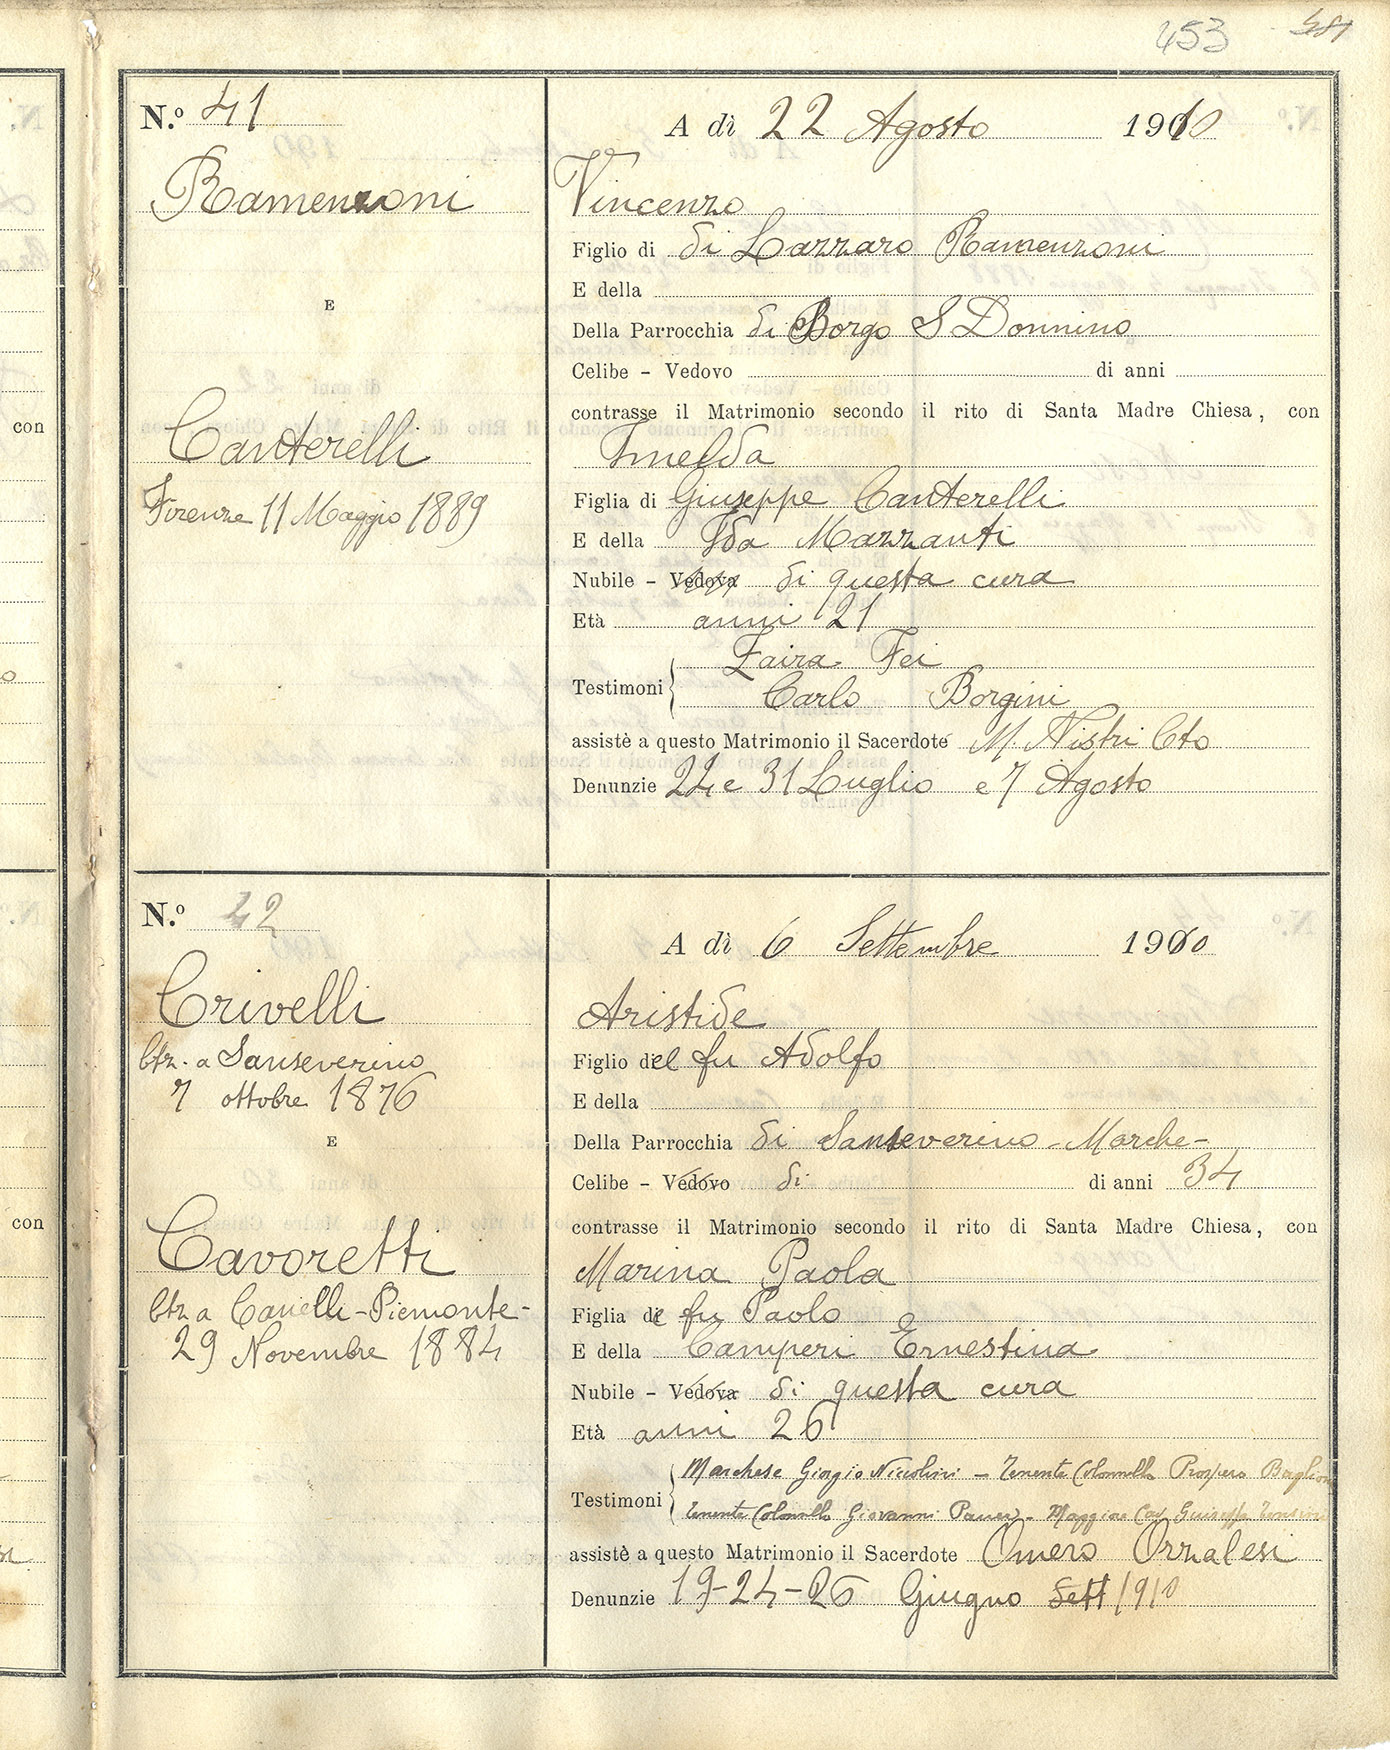 453
N.º 41
A dì 22 Agosto 1910
Ramenzoni
Vincenzo
Figlio di di Lazzaro Ramenzoni
E
E della
Della Parrocchia di Borgo S Donnino
Celibe - Vedovo di anni
contrasse il Matrimonio secondo il rito di Santa Madre Chiesa, con
con
Canterelli
Imelda
Firenze 11 Maggio 1889
Figlia di Giuseppe Canterelli
E della Ida Mazzanti
Nubile - Vedova di questa cura
Età anni 21
Zaira Fei
Testimoni
Carlo Borgini
assistè a questo Matrimonio il Sacerdote M. Nistri Cto
Denunzie 24 e 31 Luglio e 7 Agosto
N.º 42
A dì 6 Settembre 1910
Crivelli
Aristide
a Sanseverino
7 ottobre 1876
Figlio del fu Adolfo
E della
E
Della Parrocchia di Sanseverino - Marche -
Celibe - Vedovo di di anni 34
contrasse il Matrimonio secondo il rito di Santa Madre Chiesa, con
con
Cavoretti
Marina Paola
a Canelli - Piemonte -
29 Novembre 1884
Figlia del fu Paolo
E della Camperi Ernestina
Nubile - Vedova di questa cura
Età anni 26
Marchese Giorgio Niccolini - Tenente Colonnello Prospero
Testimoni
Tenente Colonnello Giovanni - Maggiore Cav Giuseppe
assistè a questo Matrimonio il Sacerdote Omero Orzalesi
Denunzie 19-24-26 Giugno Sett 1910